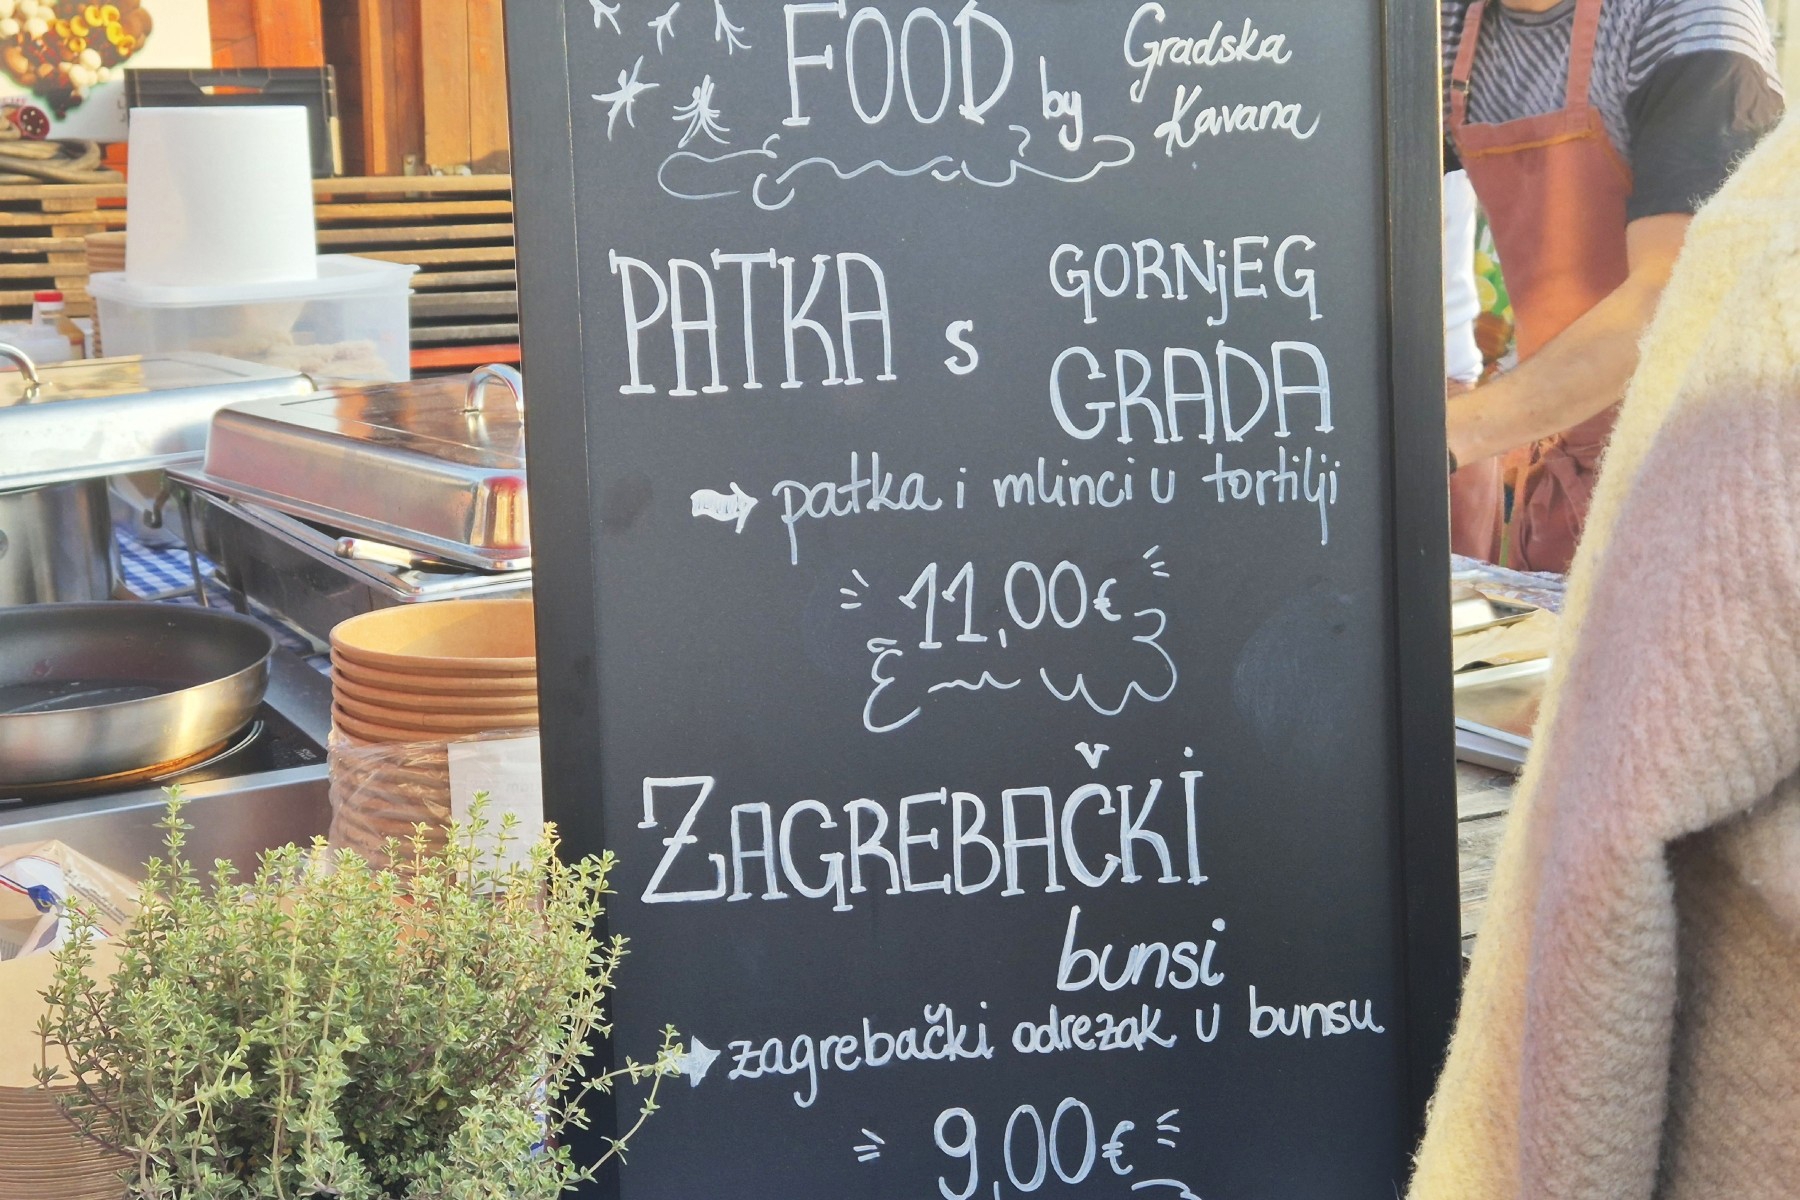 FOOD by Gradska Kavana
PATKA s GORNjEG GRADA
patka i mlinci u tortilji
11,00€
ZAGREBAČKI
bunsi
zagrebački odrezak u bunsu
9,00€